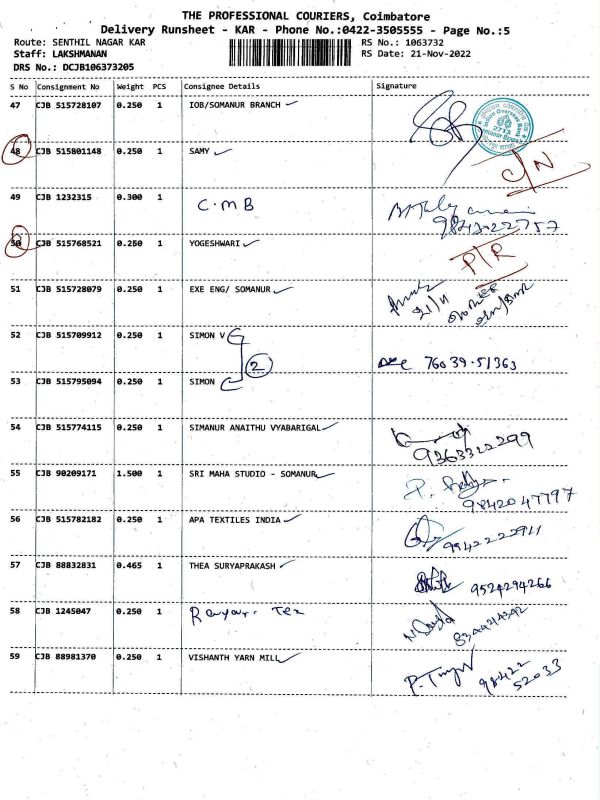 THE PROFESSIONAL COURIERS, Coimbatore
Delivery Runsheet - KAR - Phone No.:0422-3505555 - Page No.:5
Route: SENTHIL NAGAR KAR
RS No.: 1063732
Staff: LAKSHMANAN
RS Date: 21-Nov-2022
DRS No.: DCJB106373205
S No Consignment No Weight PCS Consignee Details Signature
47 CJB 515728107 0.250 1 IOB/SOMANUR BRANCH
48 CJB 515801148 0.250 1 SAMY
C/N
49 CJB 1232315 0.300 1 C.MB
9843222757
50 CJB 515768521 0.250 1 YOGESHWARI P/R
51 CJB 515728079 0.250 1 EXE ENG/ SOMANUR
21/11
52 CJB 515709912 0.250 1 SIMON V
2
76039.51363
53 CJB 515795094 0.250 1 SIMON
54 CJB 515774115 0.250 1 SIMANUR ANAITHU VYABARIGAL
9363322299
55 CJB 90209171 1.500 1 SRI MAHA STUDIO - SOMANUR
9842047797
56 CJB 515782182 0.250 1 APA TEXTILES INDIA
57 CJB 88832831 0.465 1 THEA SURYAPRAKASH
9524294266
58 CJB 1245047 0.250 1 Tex
59 CJB 88981370 0.250 1 VISHANTH YARN MILL
98422
52033